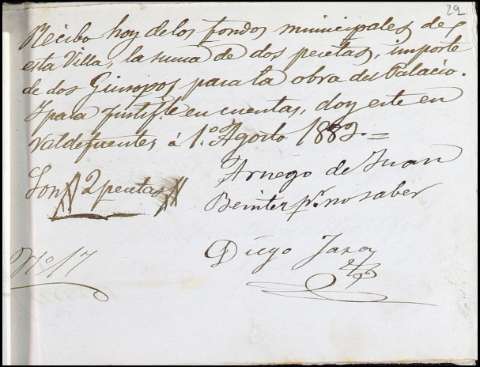 22
Recibo hoy de los fondos municipales de
esta Villa, la suma de dos pesetas, importe
de dos para la obra del Palacio.
Y para justifte en cuentas, doy este en
Valdefuentes á 1.º Agosto 1883.=
Son 2 pesetas
Arnego de Juan
p.r no saber
Diego
Nº 17